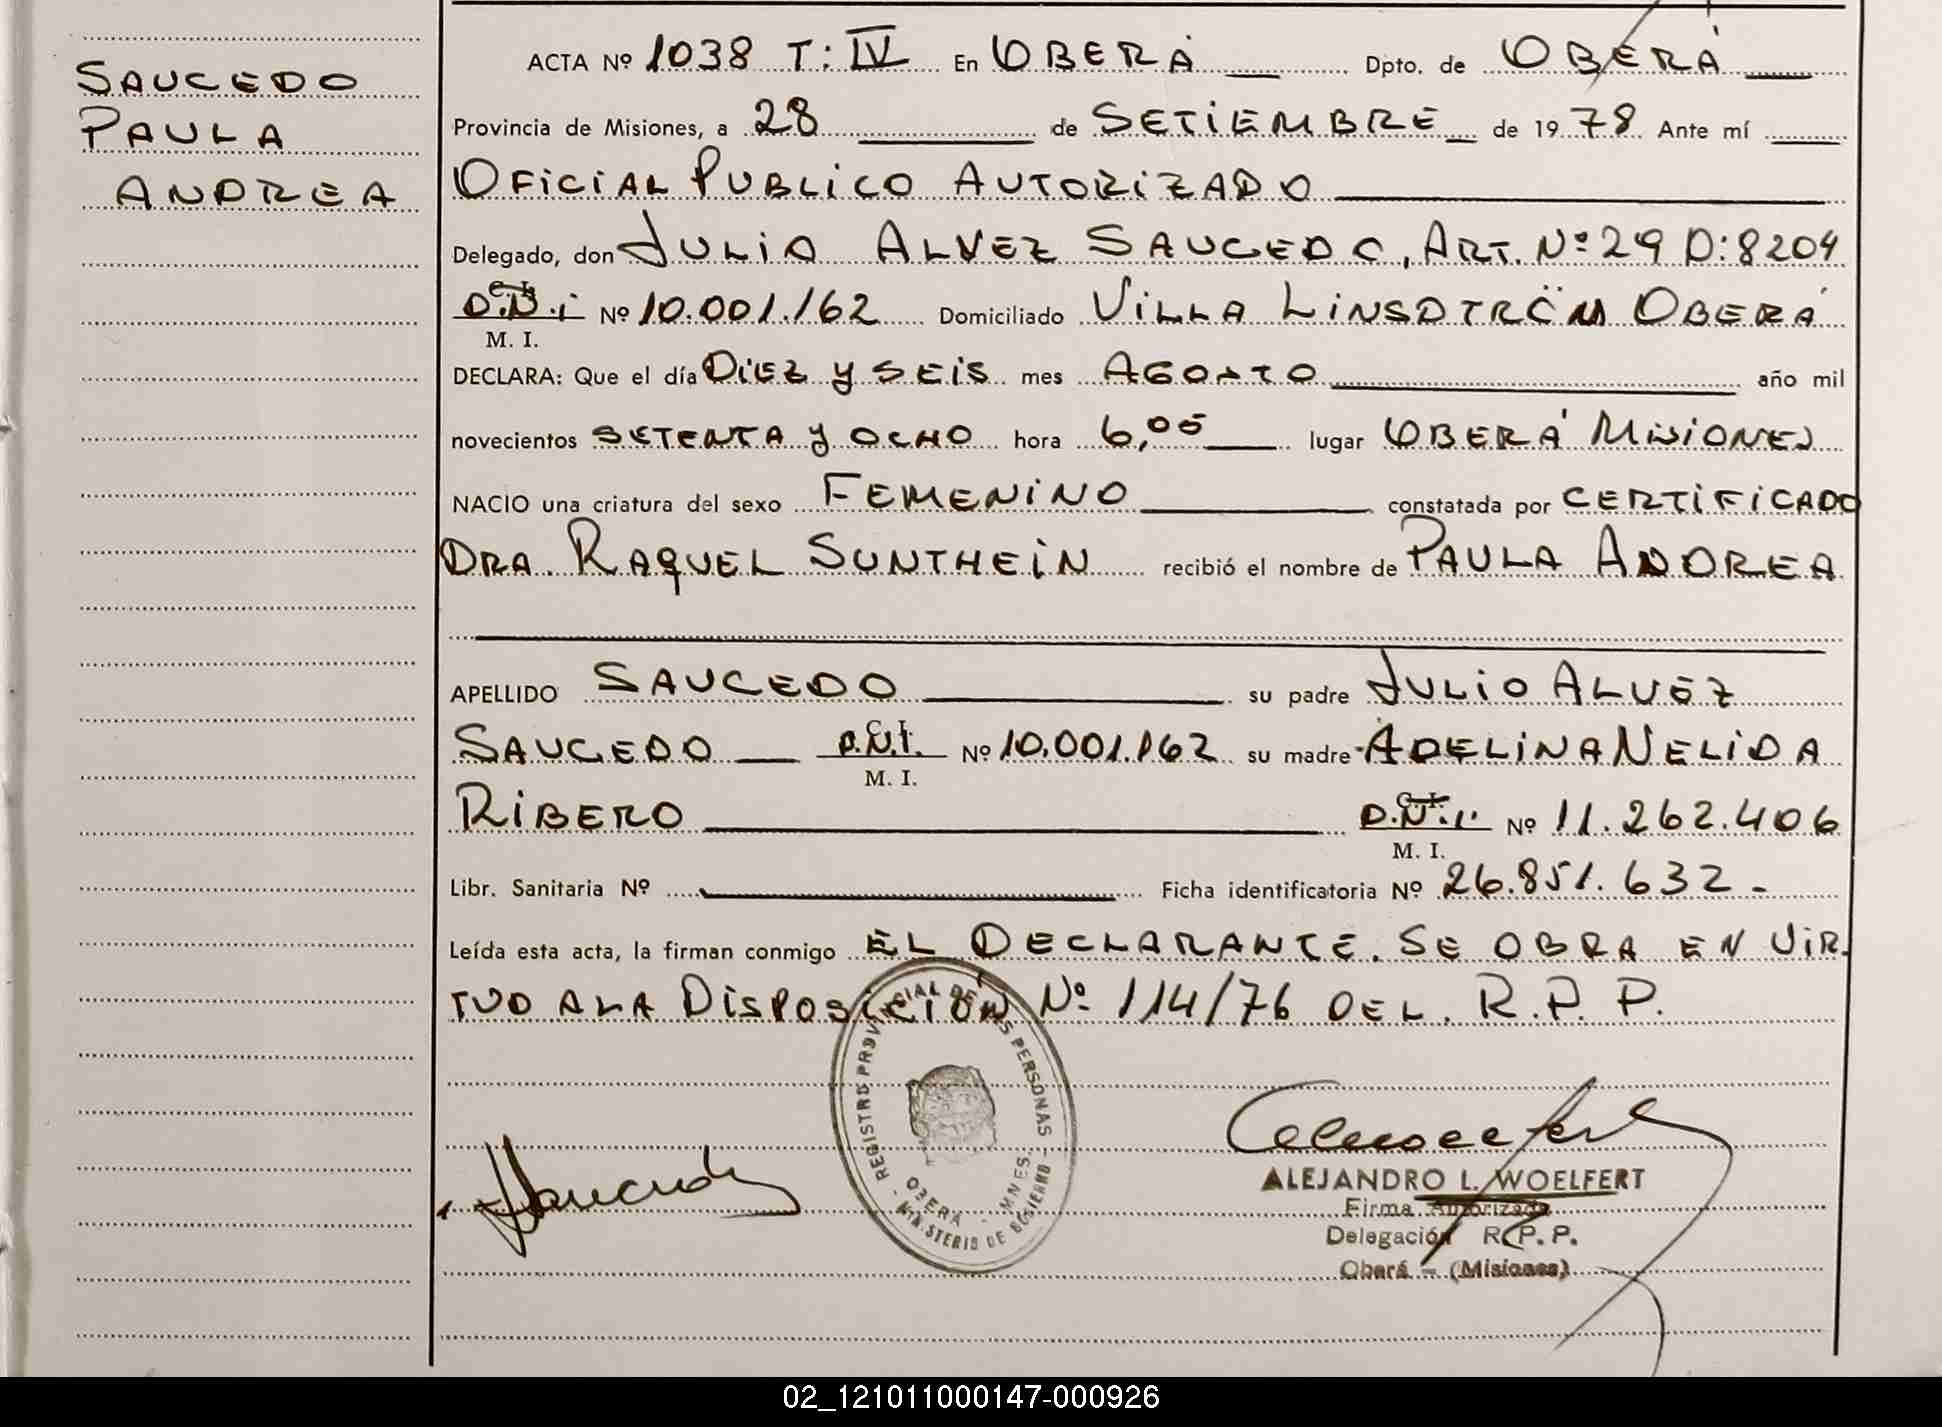 SAUCEDO
PAULA
ANDREA
ACTA Nº 1038 T: IV En OBERÁ Dpto. de OBERÁ
Provincia de Misiones, a 28 de SETIEMBRE de 1978 Ante mí
OFICIAL PUBLICO AUTORIZADO
Delegado, don JULIO ALVEZ SAUCEDO, ART. Nº 29 D: 8204
D.N.i Nº 10.001.162 Domiciliado VILLA LINSDTRÖM OBERÁ
M. I.
DECLARA: Que el día DIEZ y SEIS mes AGOSTO año mil
novecientos SETENTA y OCHO hora 6,05 lugar OBERÁ MISIONES
NACIO una criatura del sexo FEMENINO constatada por CERTIFICADO
DRA. RAQUEL SUNTHEIN recibió el nombre de PAULA ANDREA
APELLIDO SAUCEDO su padre JULIO ALVEZ
SAUCEDO D.N.I. Nº 10.001.162 su madre ADELINA NELIDA
M. I.
RIBERO D.N.I. Nº 11.262.406
M. I.
Libr. Sanitaria Nº Ficha identificatoria Nº 26.851.632 -
Leída esta acta, la firman conmigo EL DECLARANTE. SE OBRA EN VIR
TUD A LA DISPOSICIÓN Nº 114/76 DEL. R. P. P.
REGISTRO PROVINCIAL DE LAS PERSONAS
OBERÁ - MNES.
- MINISTERIO DE GOBIERNO -
ALEJANDRO L. WOELFERT
Firma Autorizada
Delegación R. P. P.
Oberá - (Misiones)
02_121011000147-000926